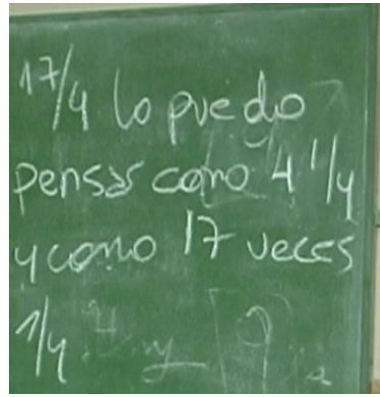 17/4 lo puedo
pensar como 4 1/4
y como 17 veces
1/4